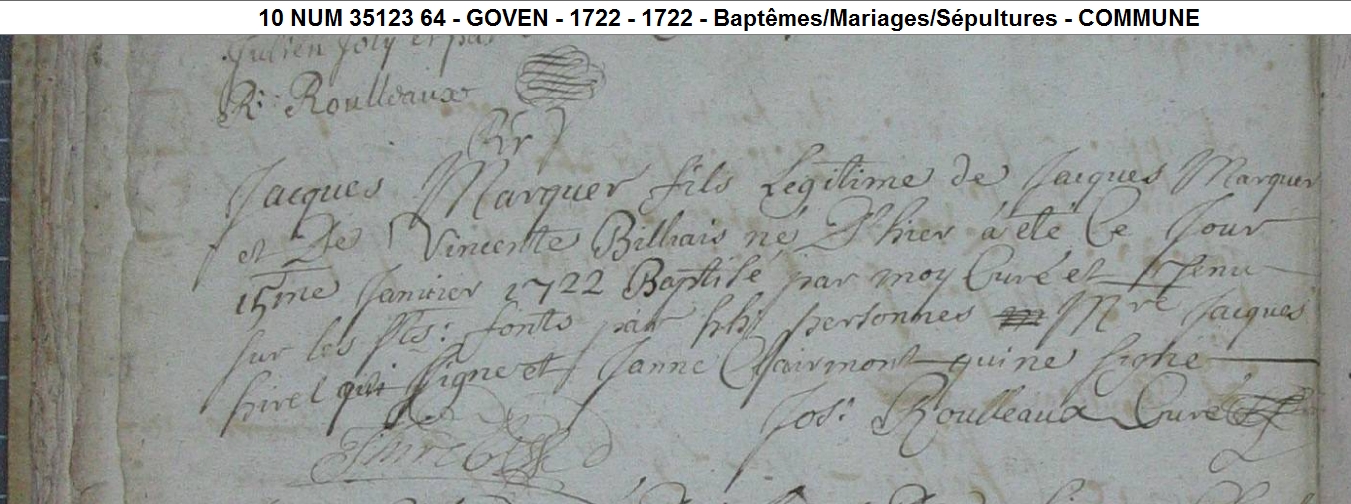 10 NUM 35123 64 - GOVEN - 1722 - 1722 - Baptêmes/Mariages/Sépultures - COMMUNE
Julien Joly et par
R: Roulleaux
Jacques Marquer fils Legitime de Jacques Marquer
et De Vincente Billiais né D'hier à été Ce Jour
15me Janvier 1722 Baptisé par moy Curé et Tenu
sur les sts: fonts par hh personnes Mre Jacques
hirel qui signe et Janne Clairmont qui ne signe
Jos: Roulleaux Curé